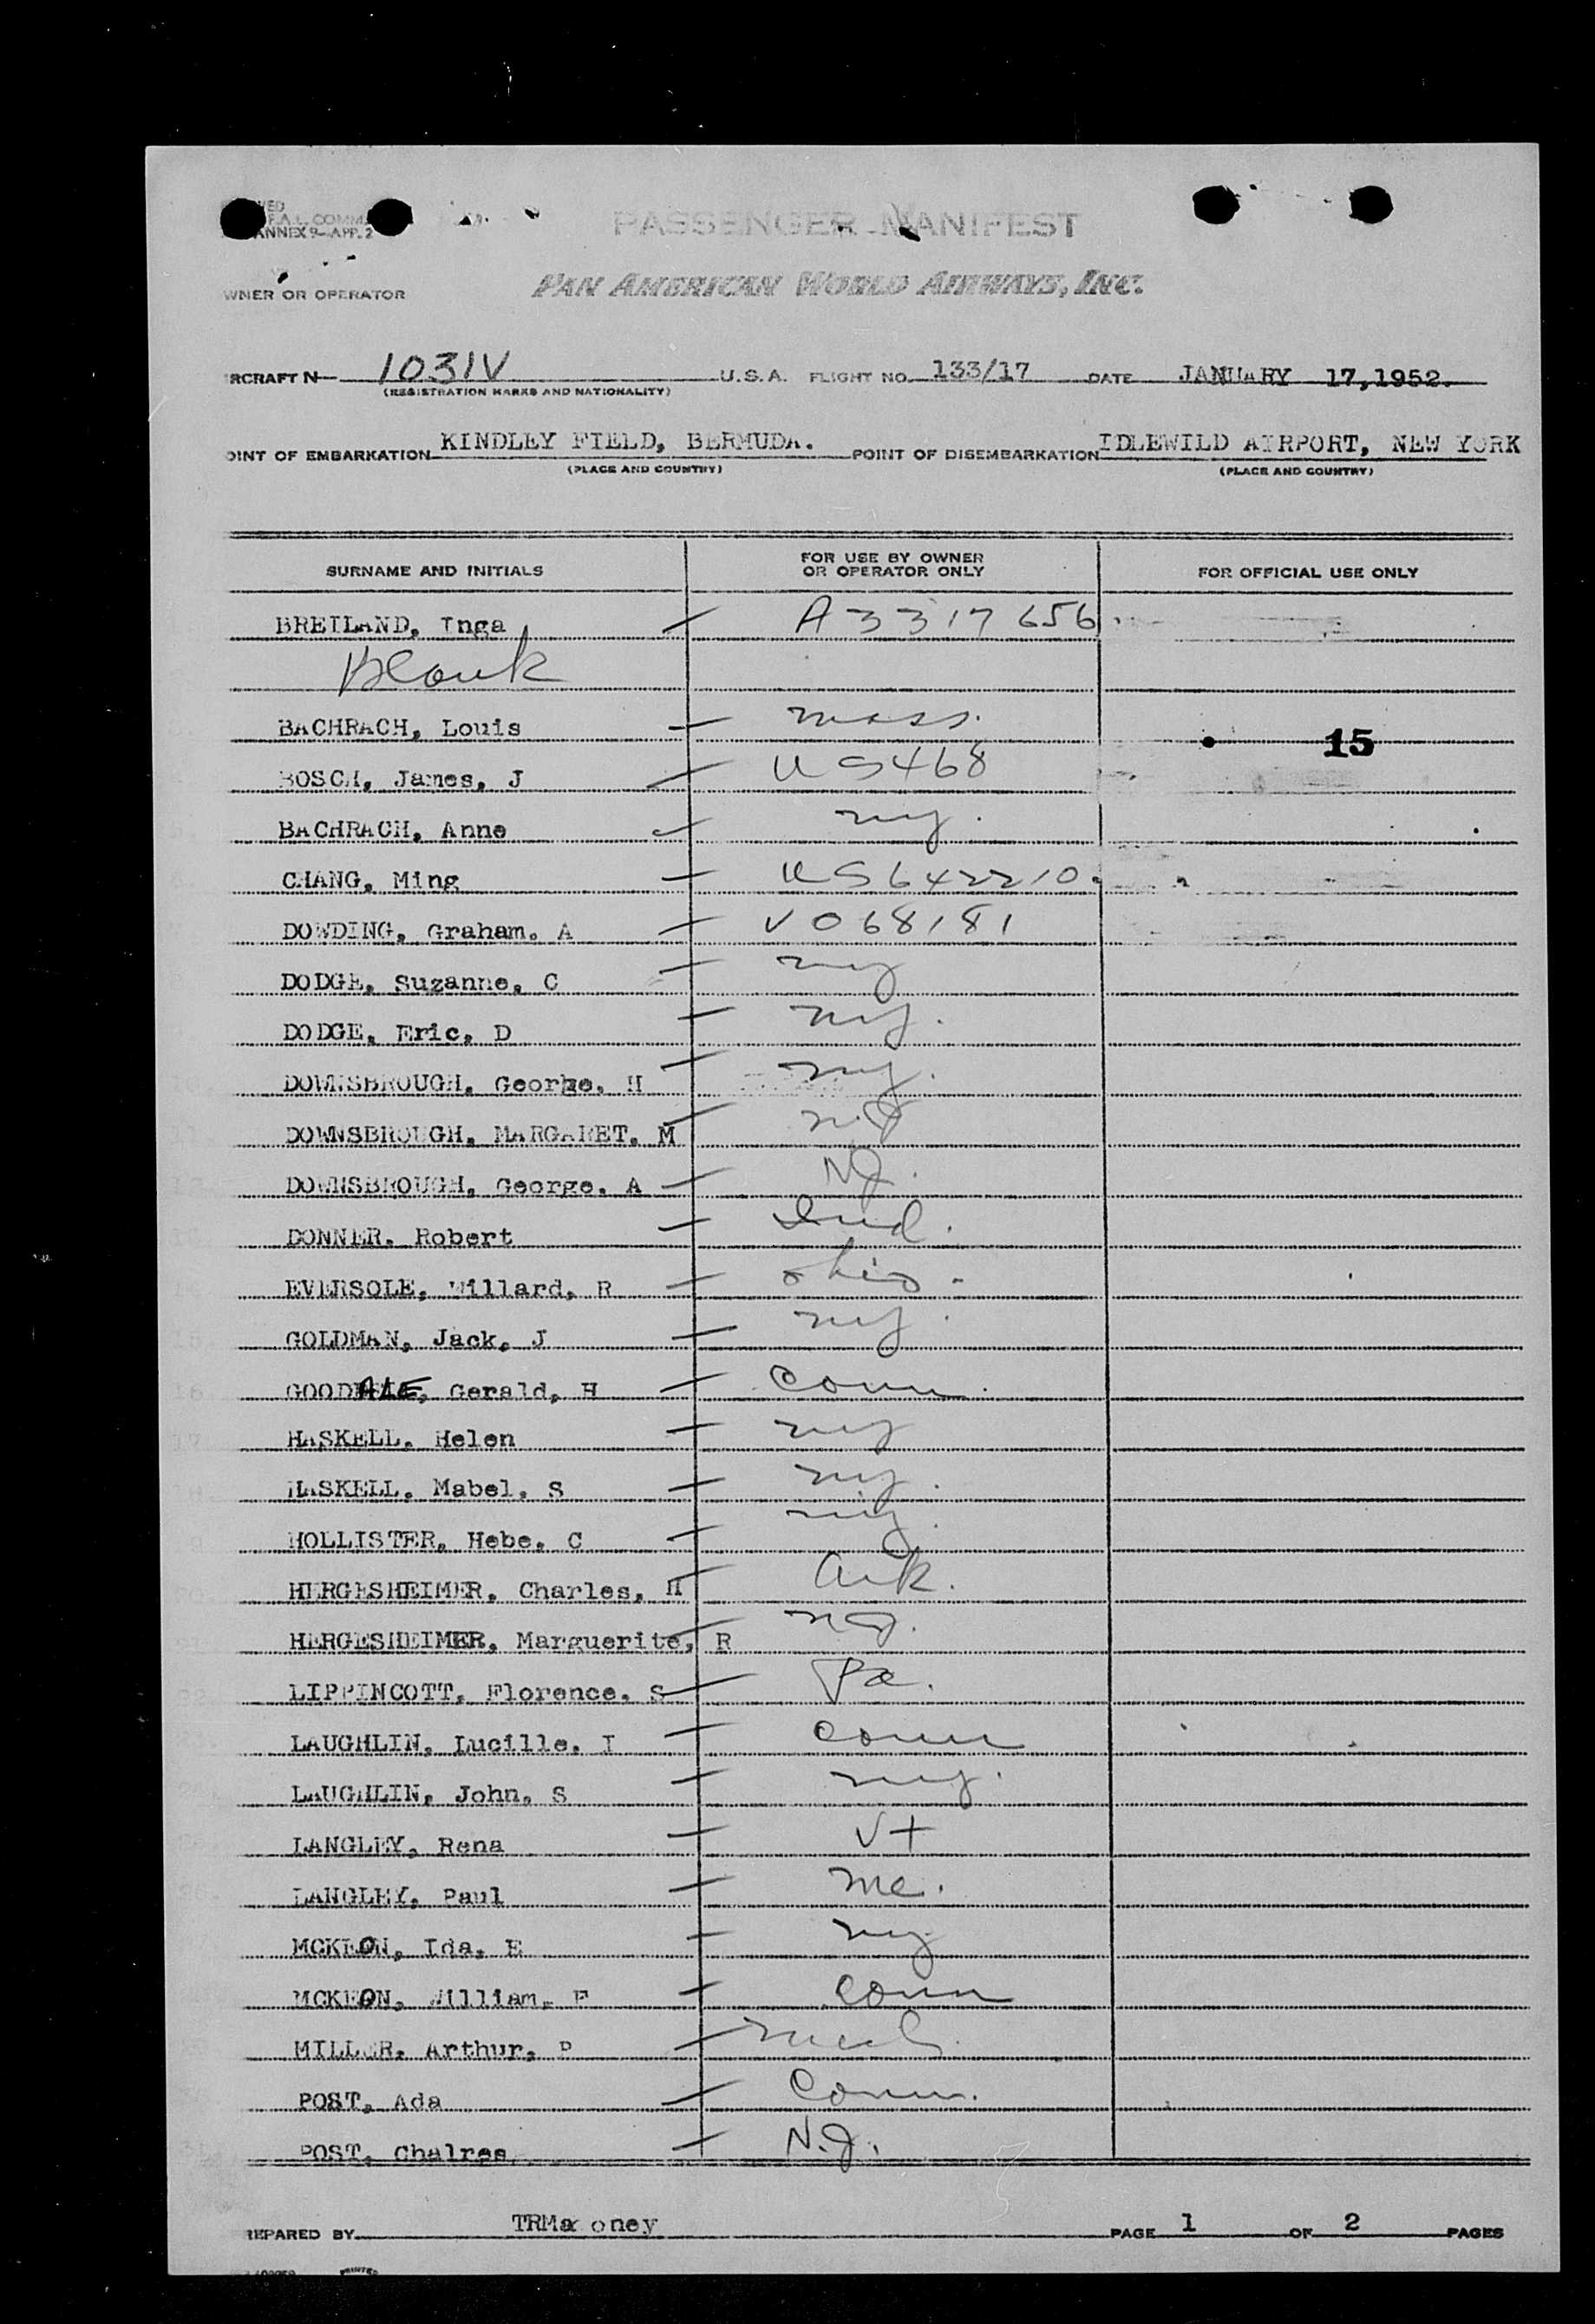 VED
F.A.L. COMM.
ANNEX 9-APP. 2
PASSENGER MANIFEST
WNER OR OPERATOR PAN AMERICAN WORLD AIRWAYS, INC.
RCRAFT N- 1031V U.S.A. FLIGHT NO. 133/17 DATE JANUARY 17,1952.
(REGISTRATION MARKS AND NATIONALITY)
OINT OF EMBARKATION KINDLEY FIELD, BERMUDA. POINT OF DISEMBARKATION IDLEWILD AIRPORT, NEW YORK
(PLACE AND COUNTRY) (PLACE AND COUNTRY)
SURNAME AND INITIALS FOR USE BY OWNER OR OPERATOR ONLY FOR OFFICIAL USE ONLY
BREILAND, Inga A3317656
Blank
BACHRACH, Louis mass.
15
BOSCH, James, J US468
BACHRACH, Anne ny.
CHANG, Ming US642210
DOWDING, Graham, A V068181
DODGE, Suzanne, C ny
DODGE, Eric, D ny.
DOWNSBROUGH, George, H ny.
DOWNSBROUGH, MARGARET, M NJ
DOWNSBROUGH, George, A NJ.
DONNER, Robert Ind.
EVERSOLE, Willard, R ohio
GOLDMAN, Jack, J ny.
16. GOODALE, Gerald, H Conn.
HASKELL, Helen ny
HASKELL, Mabel, S ny.
HOLLISTER, Hebe, C ny.
HERGESHEIMER, Charles, H Ark.
HERGESHEIMER, Marguerite, R NJ.
LIPPINCOTT, Florence, S Pa.
LAUGHLIN, Lucille, I Conn
LAUGHLIN, John, S ny.
LANGLEY, Rena Vt
LANGLEY, Paul me.
MCKEON, Ida, E ny
MCKEON, William, F Conn
MILLER, Arthur, P
POST, Ada Conn.
POST, Chalres N.J.
REPARED BY TRMa oney PAGE 1 OF 2 PAGES
PRINTED